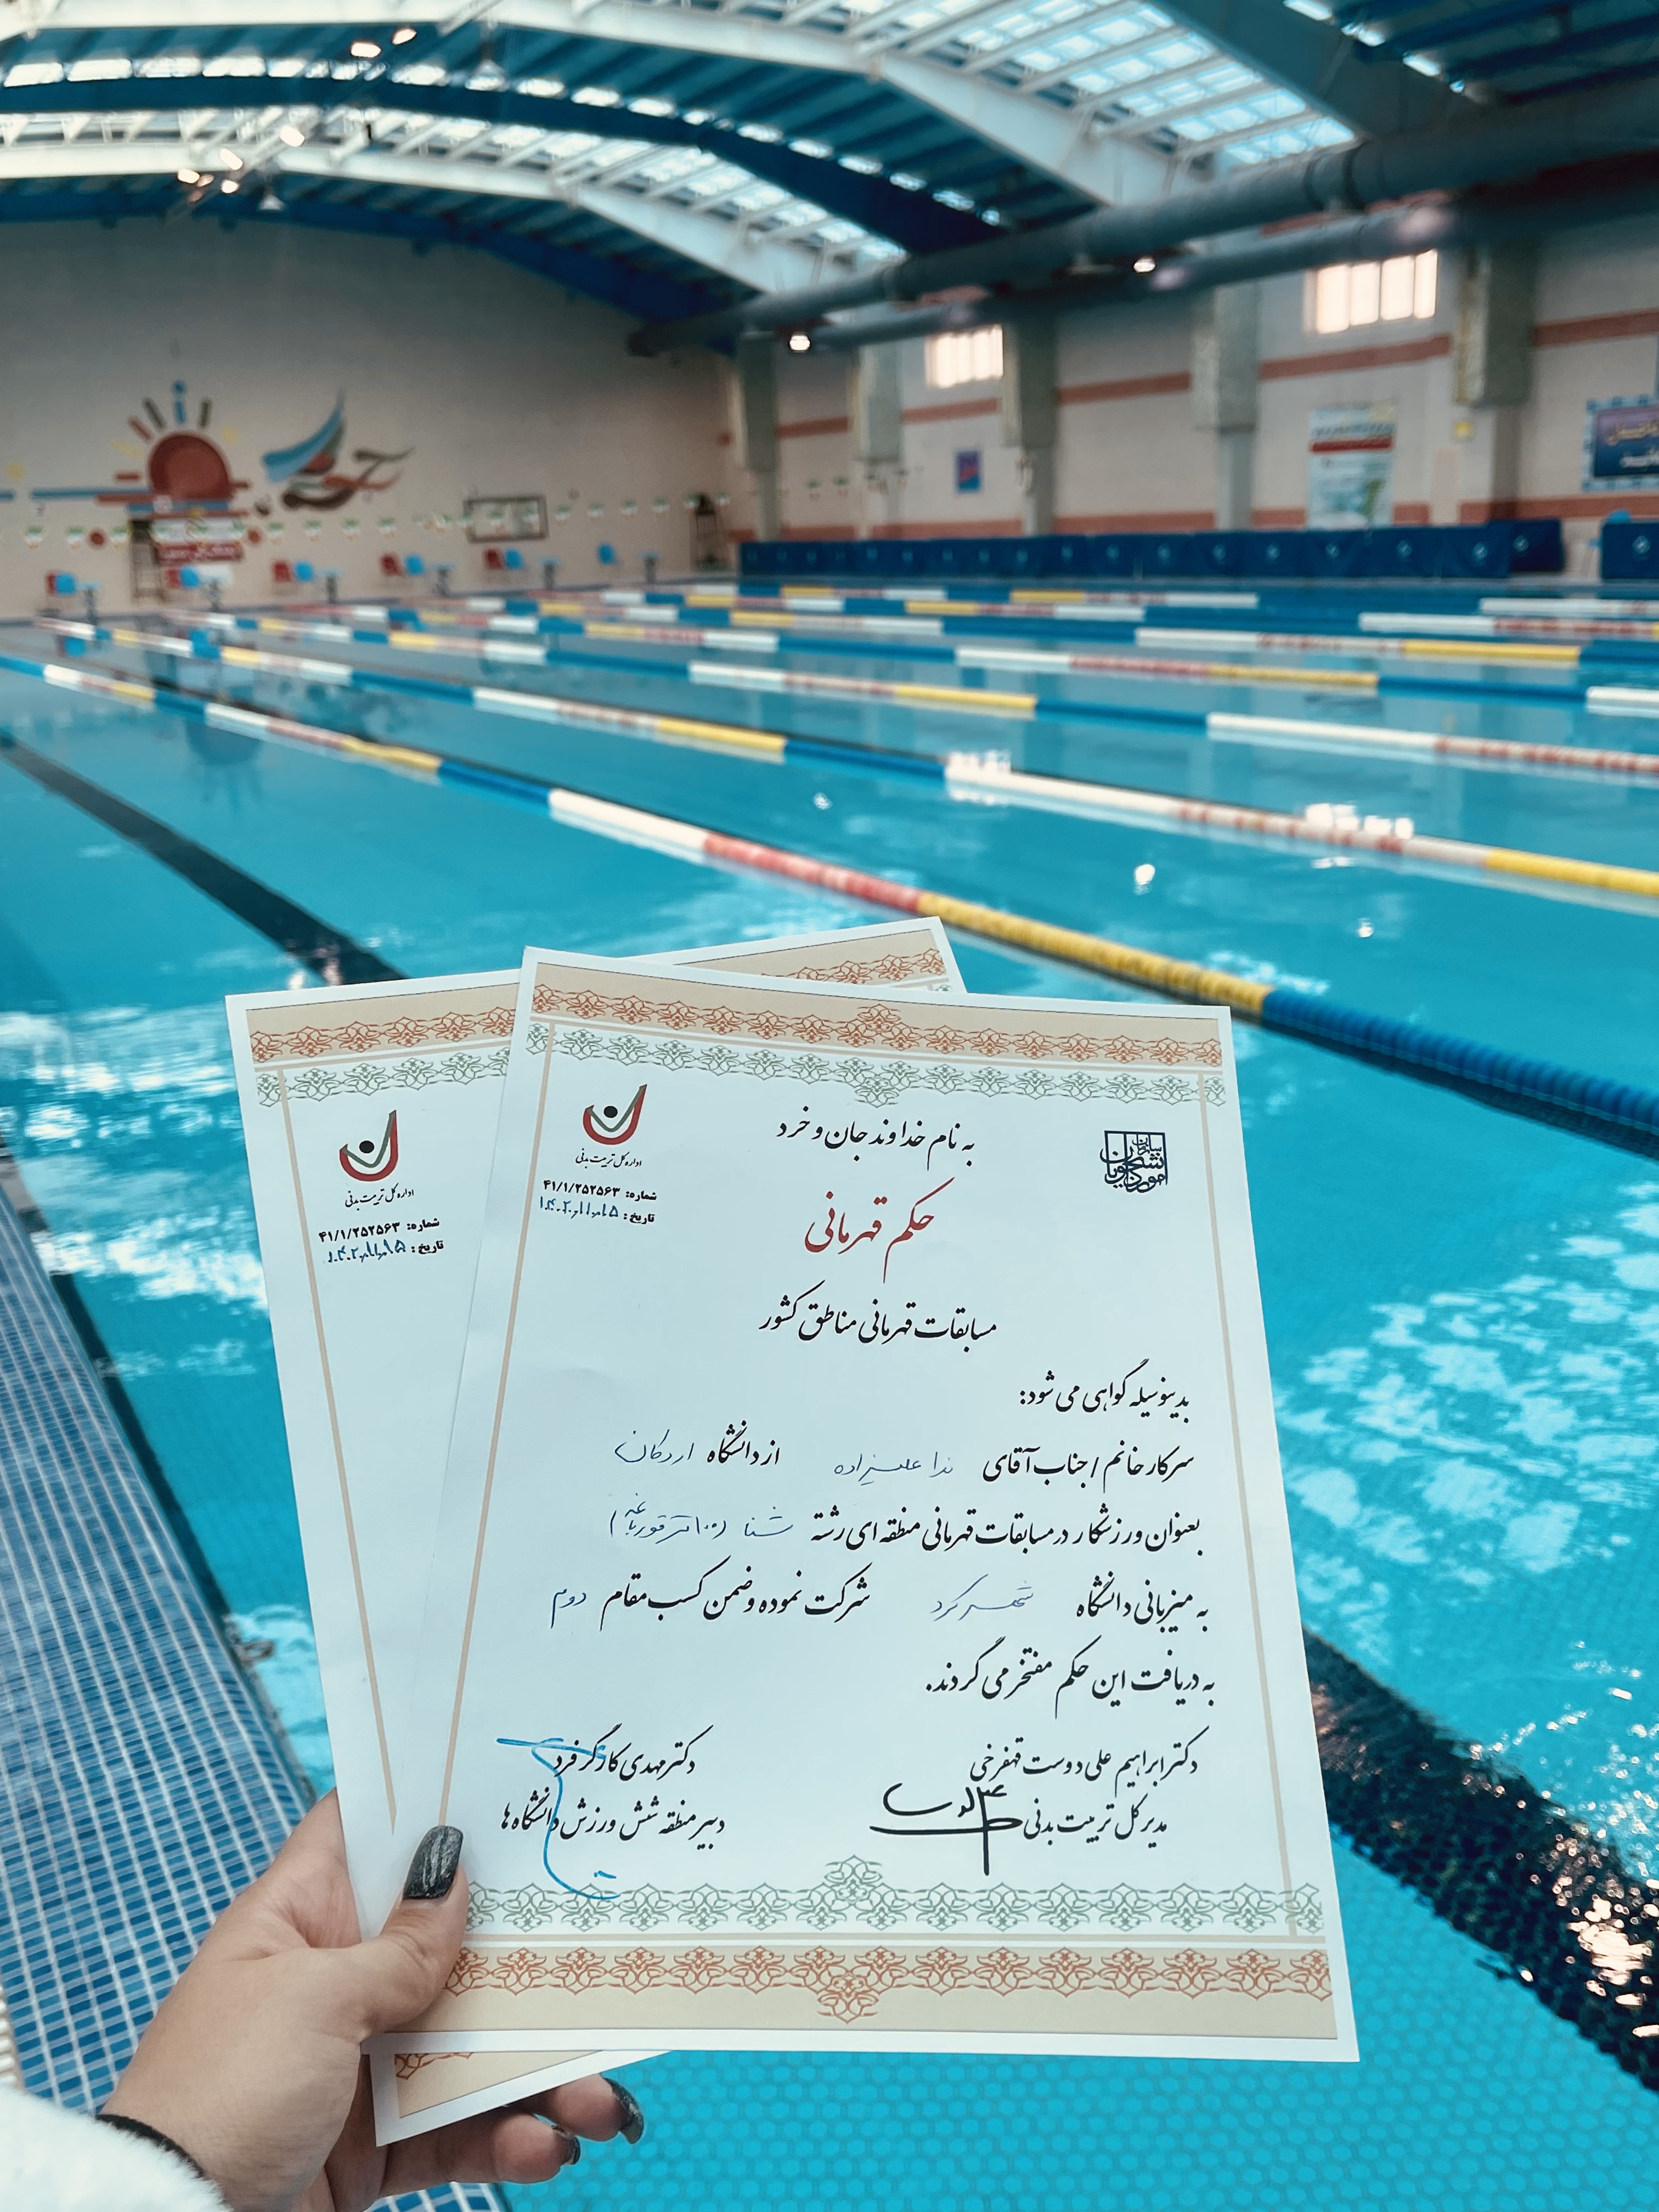 به نام خداوند جان و خرد
سازمان امور دانشجویان
اداره کل تربیت بدنی
شماره: ۴۱/۱/۲۵۲۵۶۳
تاریخ: ۱۴۰۲٫۱۱٫۱۵
حکم قهرمانی
مسابقات قهرمانی مناطق کشور
بدینوسیله گواهی می شود:
سرکار خانم / جناب آقای ندا علیزاده از دانشگاه اردکان
بعنوان ورزشکار در مسابقات قهرمانی منطقه ای رشته شنا (۱۰۰ متر قورباغه)
به میزبانی دانشگاه شهرکرد شرکت نموده و ضمن کسب مقام دوم
به دریافت این حکم مفتخر می گردند.
دکتر ابراهیم علی دوست قهفرخی
مدیر کل تربیت بدنی
دکتر مهدی کارگر فرد
دبیر منطقه شش ورزش دانشگاه ها
اداره کل تربیت بدنی
شماره: ۴۱/۱/۲۵۲۵۶۳
تاریخ: ۱۴۰۲٫۱۱٫۱۵